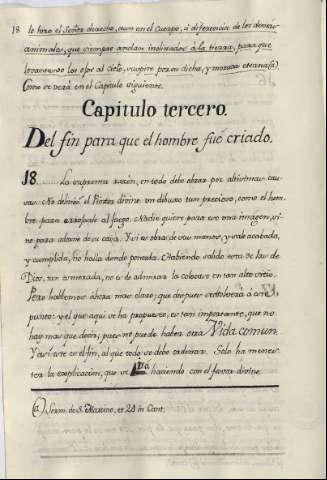 18
le hizo el Señor derecho, aun en el cuerpo, à diferencia de los demàs
animales, que siempre andan inclinados à la tierra, para que
levantando los ojos al cielo, suspire por su dicha, y morada eterna.(a)
Como se verà en el Capitulo siguiente.
Capitulo tercero.
Del fin para que el hombre fuè criado.
18. La suprema razon, en todo debe obrar por altisimas cau-
sas. No dibujò el Pintor divino un dibujo tan precioso, como el hom-
bre para arrojarle al fuego. Nadie quiere para eso una imagen, si-
no para adorno de su casa. Y si es obra de sus manos, y sale acabada,
y cumplida, no halla donde ponerla. Habiendo salido esta de las de
Dios, tan esmerada, no es de admirar la colocase en tan alto
Pero hablemos ahora mas claro; que despues
punto: y el que aqui se ha propuesto, es tan importante, que no
hay mas que decir; pues no puede haber otra Vida comun.
Y asi este es el fin, al que todo se debe ordenar. Solo ha menes-
ter la explicacion, que se irà haciendo con el favor divino.
(a) Serm. de S. Maximo, et 24 in Cant.